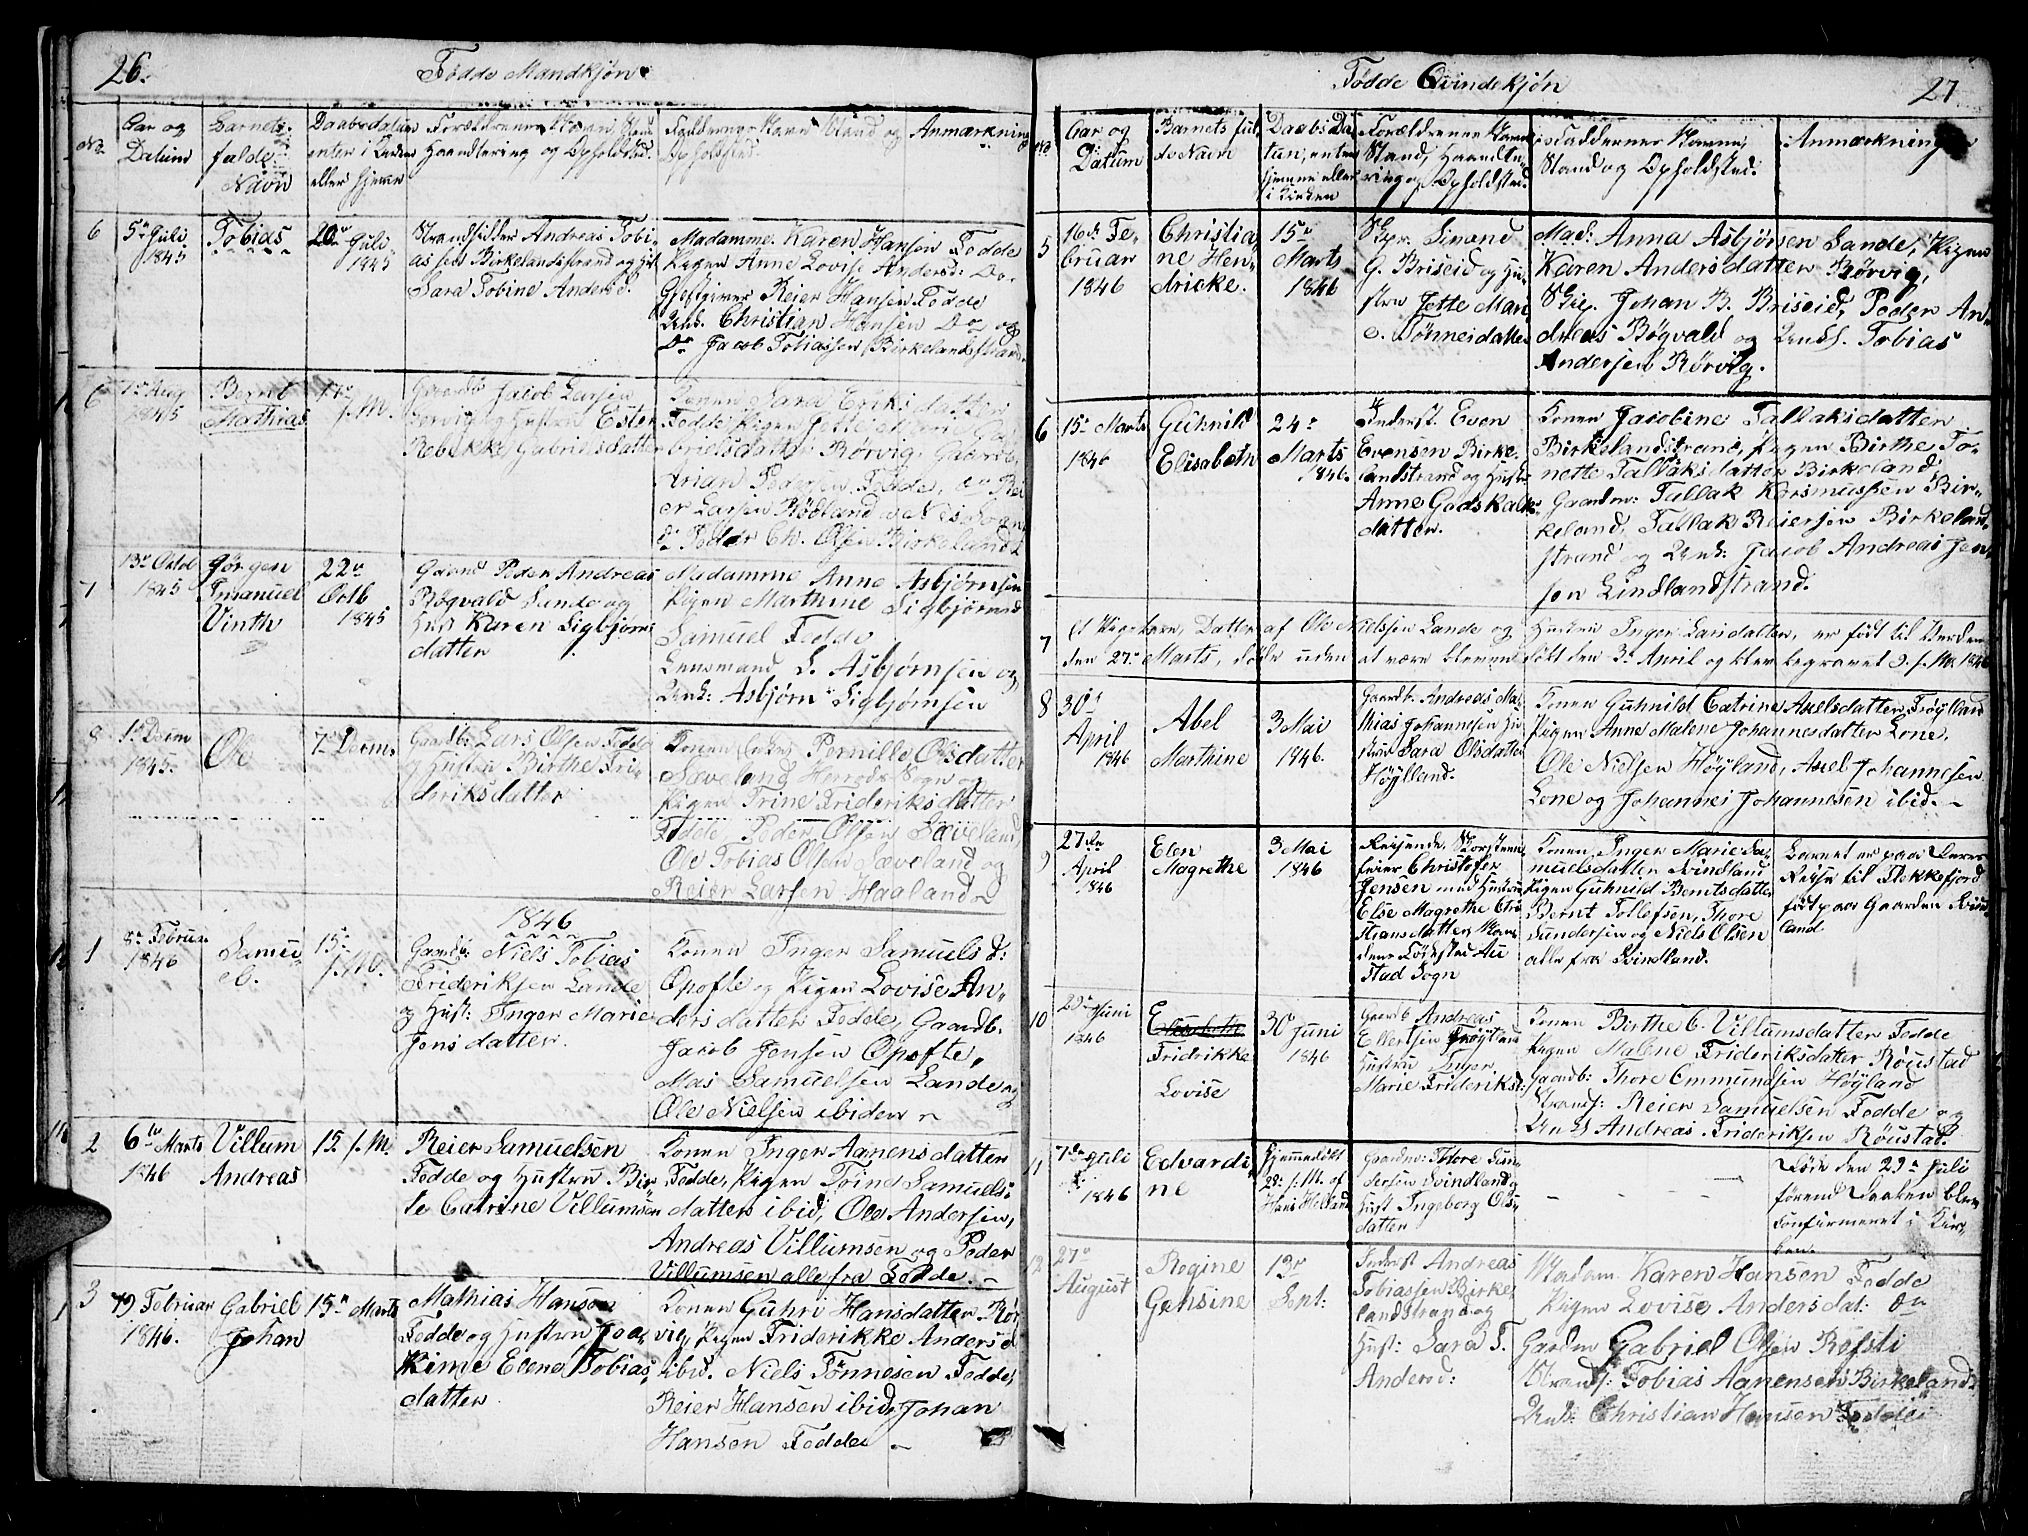 26.
Fødde Mandkjøn.
No.
Aar og
Datum
Barnets
fulde
Navn
Daabsdatum
enten i Kirken
eller hjemme
Forældrenes Navn, Stand
Haandtering og Opholdsted.
Faddernes Navn Stand og
Opholdsted.
Anmærkning
6
5te Juli
1845
Tobias
20de Juli
1845
Strandsidder Andreas Tobi-
assen Birkelandsstrand og Hst
Sara Tobine Andersd.
Madamme Karen Hansen Fedde
Pigen Anne Lovise Andersd: Do-
Gjestgiver Reier Hansen Fedde
Unk. Christian Hansen Do og
Do Jacob Tobiassen Birkelandsstrand.
6
1845
Bernt
Mathias
f. M.
Gaardb Jacob Larsen
Rørvig og Hustru Ester
Rebekke Gabrielsdatter
Konen Sara Eriksdatter
Fedde Pigen Jette Marie Ga-
brielsdatter Rørvig, Gaardb.
Arian Pedersen Fedde,
er Larsen
Peder Chr. Olsen Birkeland
7
13de Octob
1845
Jørgen
Emanuel
Vinth
22de
Octb
1845
Gaard Peder Andreas
Røgvald Lande og
Hust Karen Sigbjørns
datter
Madamme Anne Asbjørnsen
Pigen Marthine Sigbjørnsd
Samuel Fedde
Lensmand S. Asbjørnsen og
Unk: Asbjørn Sigbjørnsen
8
1ste Decem
1845.
Ole
7de Decem.
Gaardb: Lars Olsen Fedde
og Hustru Birthe Fri-
deriksdatter
Konen Pernille Olsdatter
Sæveland Herreds Sogn og
Pigen Trine Frideriksdatter
Fedde, Peder Olsen Sæveland,
Ole Tobias Olsen Sæveland og
Reier Larsen Haaland
1846
1
8de Februar
1846
Samu-
el.
15de
f. M.
Gaardb: Niels Tobias
Frideriksen Lande
og Hust: Inger Marie
Jensdatter.
Konen Inger Samuelsd:
Opofte og Pigen Lovise An-
dersdatter Fedde, Gaardb.
Jacob Jensen Opofte,
Mas Samuelsen Lande og
Ole Nielsen ibiden
2
6te Marts
1846
Villum
Andreas
15. f. M.
Reier Samuelsen
Fedde og Hustru Bir-
te Catrine Villumsen
Konen Inger Aanensdatter
Fedde, Pigen Trine Samuels
datter ibid, Ole Andersen,
Andreas Villumsen og Peder
Villumsen alle fra Fedde.
3
19. Februar
1846.
Gabriel
Johan
15de Marts
Mathias Hansen
Fedde og Hustru Joa-
kime Elene Tobias
datter
Konen Guhri Hansdatter Rør
vig, Pigen Friderikke Andersd
ibid. Niels Tønnesen Fedde,
Reier Hansen ibid, Johan
Hansen Fedde
27
Fødde Qvindekjøn
No
Aar og
Datum
Barnets ful
de Navn
Daabs Da
tum, enten
hjemme eller
i Kirken
Forældrenes Navn
Stand, Haandte-
ring og Opholdsted.
Faddernes Navne,
Stand og Opholdsted.
Anmærkninger
5
16de Fe-
bruar
1846
Christia
ne Hen-
dricke.
15de
Marts
1846
Skpr. Simond
G. Briseid og Hu-
stru Jette Mari
e. Tønnesdatter
Mad: Anna Asbjørsen Lande, Pigen
Karen Andersdatter Rørvig,
Skip. Johan B. Briseid, Peder An-
dreas Røgvald og Unds. Tobias
Andersen Rørvig.
6
15de Marts
1846
Guhnild
Elisabeth
24de
Marts
1846.
Inderst. Even
Evensen Birke-
landstrand og Hust:
Anne Godskalks
datter.
Konen Jacobine Tallaksdatter
Birkelandstrand, Pigen Birthe To-
nette Tallaksdatter Birkeland
Gaardm: Tallak Rasmussen Bir-
keland, Tallak Reiersen Birkeland-
strand og Unk: Jacob Andreas Jen
sen Lindlandstrand.
7
Et Pigebarn, Datter af Ole Nielsen Lande og Hustru Inger Larsdatter, er født til Verden
den 27de Marts, døde uden at være bleven døbt den 3de April og blev begravet 9. f. M. 1846
8
30de
April
1846
Abel
Marthine
3 Mai
1846.
Gaardb. Andreas Ma-
thias Johannesen Hu-
stru Sara Olsdatter
Høylland.
Konen Guhnild Catrine Axelsdatter Frøyland
Pigen Anne Malene Johannesdatter Lone,
Ole Nielsen Høyland, Axel Johannesen
Lone og Johannes Johannesen ibid.
9
27de
April
1846
Elen
Magrethe
3 Mai
1846
Reisende Skorsteen-
feier Christofer
Jensen med Hustru
Else Magrethe Chri
stiansdatter
dens Fødested Au
stad Sogn
Konen Inger Marie Sa-
muelsdatter Svindland
Pigen Guhnild Berntsdatter
Bernt Tollefsen, Thore
Sundersen og Niels Olsen
alle fra Svindland.
Barnet er paa Deres
Reise til Flekkefjord
født paa Gaarden Svind
land
10
29de Juni
1846
Fridrikke
Lovise
30de Juni
1846
Gaardb Andreas
Ellertsen Frøyland
Hustru Inger
Marie Frideriksd:
Konen Birthe C. Villumsdatter Fedde
Pigen Malene Frideriksdatter Røustad
Gaardb: Thore Ommundsen Høyland
Strands: Reier Samuelsen Fedde og
Unds Andreas Frideriksen Røustad.
11
7de Juli
1846
Edvardi
ne
Hjemmedøbt
28. f. M. af
Hans Helland
Gaardm: Thore Sun-
dersen Svindland
Hust Ingeborg Ols
datter
Døde den 29de Juli
førend Daaben blev
Confirmeret i Kir-
ken.
12
27de
August
Regine
Gensine
13de
Sept:
Inderst Andreas
Tobiassen Birke
landstrand og
Hust: Sara T.
Andersd:
Madam. Karen Hansen Fedde
Pigen Lovise Andersdat: Do
Gardm Gabriel Olsen Røfsti
Strands: Tobias Aanensen Birkeland
Unk: Christian Hansen Fedde